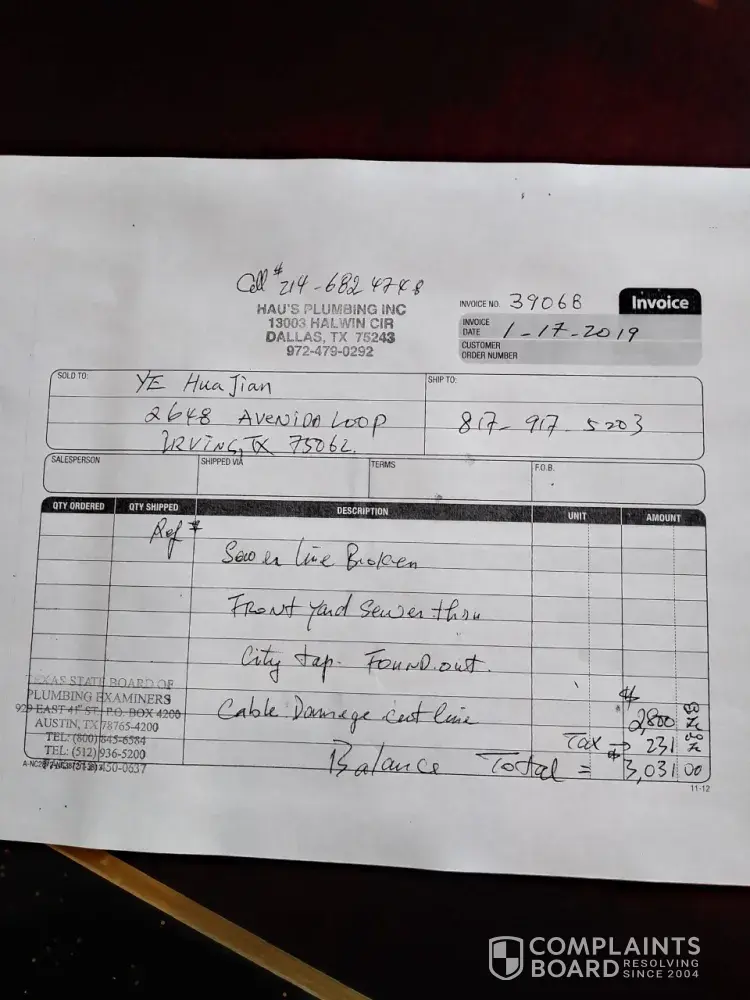 Cell # 214-682 4748
HAU'S PLUMBING INC
13003 HALWIN CIR
DALLAS, TX 75243
972-479-0292
INVOICE NO. 39068
Invoice
INVOICE DATE 1-17-2019
CUSTOMER ORDER NUMBER
SOLD TO: YE Hua Jian
2648 AVENIDA LOOP
IRVING, TX 75062.
SHIP TO:
817-917-5203
SALESPERSON SHIPPED VIA TERMS F.O.B.
QTY ORDERED QTY SHIPPED DESCRIPTION UNIT AMOUNT
Ref #
Sewer line Broken
FRONT yard Sewer thru
City tap. FOUND out.
Cable Damage cut line $ 2800
Tax → 231
Balance Total = $ 3,031 00
TEXAS STATE BOARD OF
PLUMBING EXAMINERS
929 EAST 41ST, P.O. BOX 4200
AUSTIN, TX 78765-4200
TEL: (800) 845-6584
TEL: (512) 936-5200
450-0637
11-12
COMPLAINTS BOARD
RESOLVING SINCE 2004